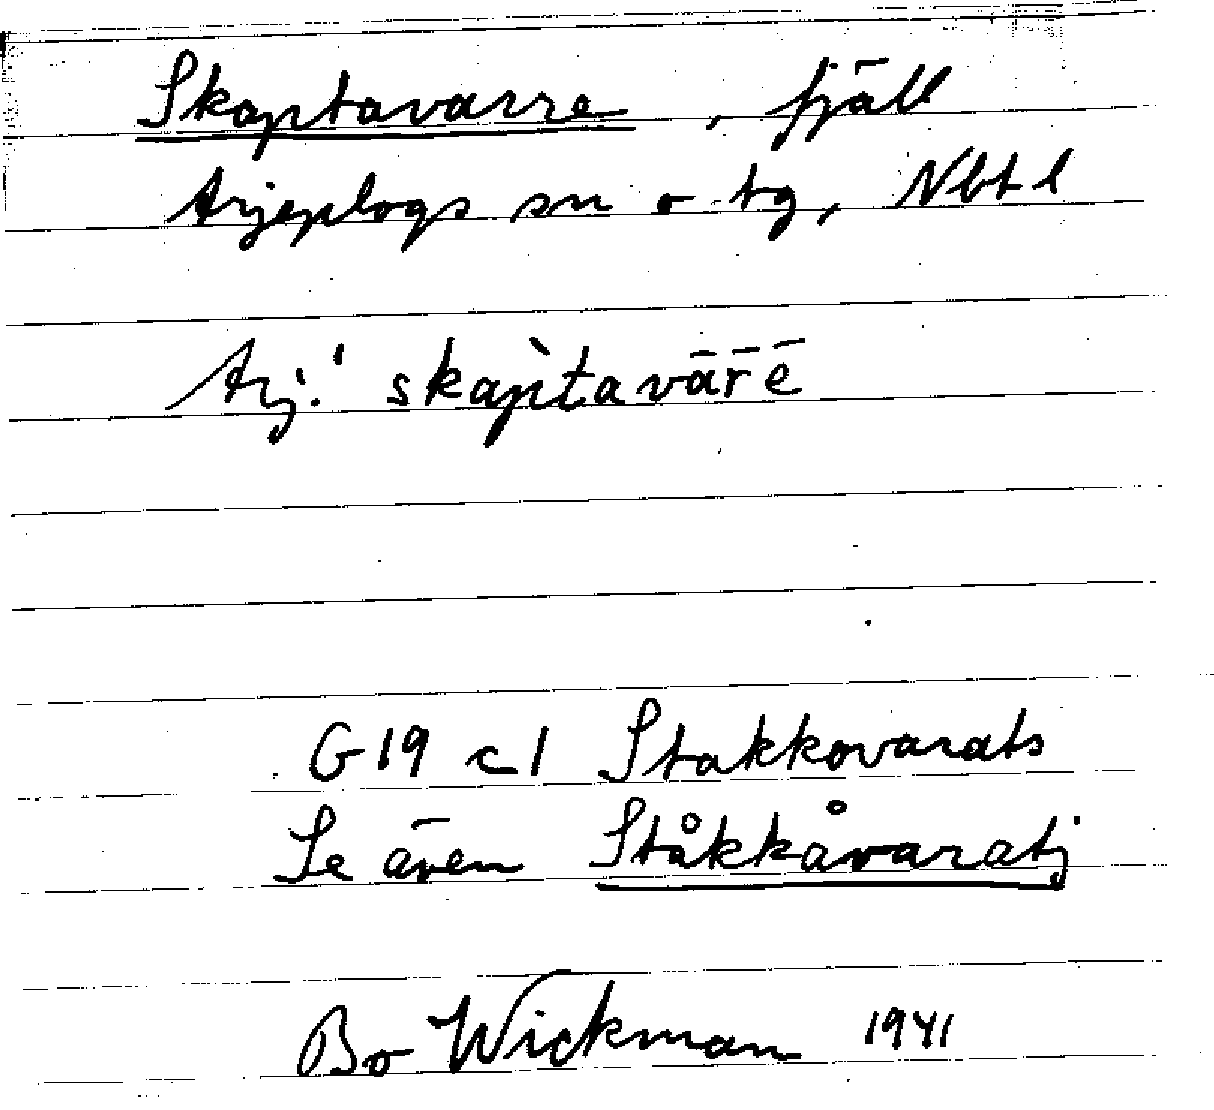 Skaptavarre, fjäll
Arjeplogs sn o tg, Nbt l
Arj. skap̀tavār̄ē
G19 c1 Stakkovarats
Se även Ståkkåvaratj
Bo Wickman 1941